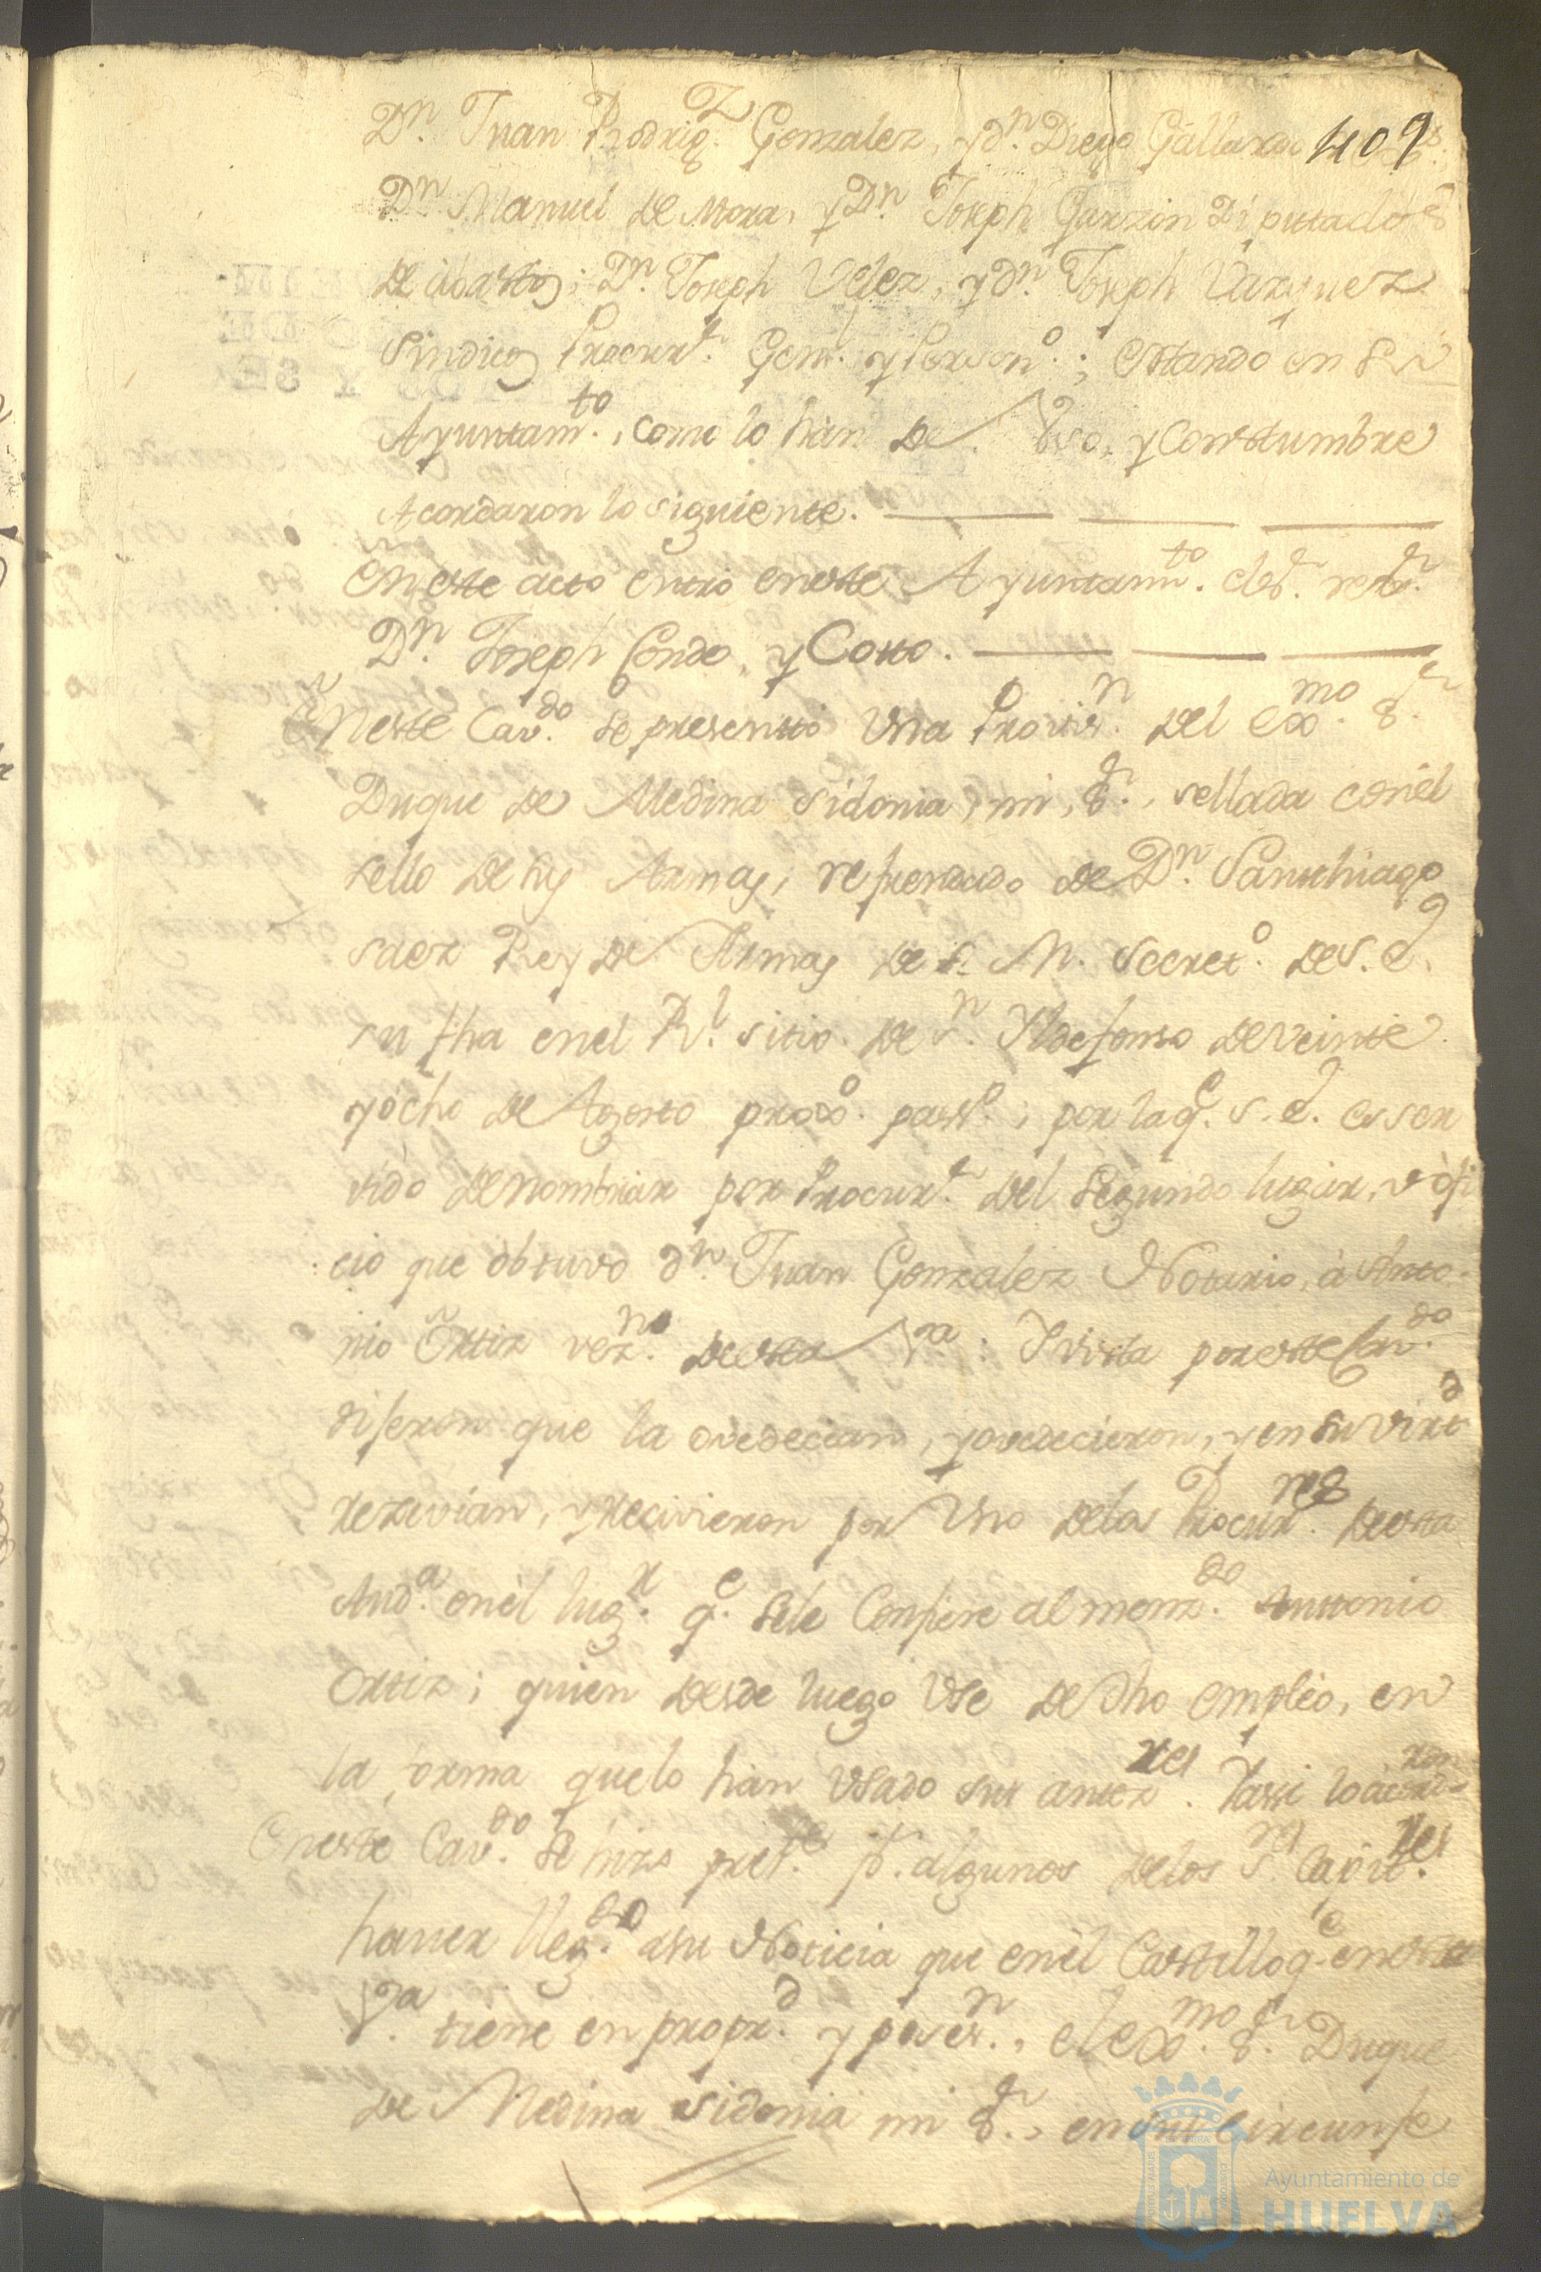 Dn. Juan Rodrigz. Gonzalez, y dn. Diego Gallardo 409
Dn Manuel de Mora, y Dn. Joseph Garzon Diputados
de abastos; Dn. Joseph Velez, y dn. Joseph Vazquez
Sindicos Procurr. Genl. y Person.o; estando en su
Ayuntam.to, como lo han de Vso, y Constumbre
Acordaron lo siguiente.
En este acto entró en este Ayuntam.to el sr.
Dn. Joseph Conde, y Cotto.
En este Cav.do se presentó Vna Provis.n del Exmo. Sr.
Duque de Medina Sidonia, mi, Sr., sellada con él
sello de sus Armas, refrendado de Dn. Santhiago
saez Rey de Armas de S. M. Secret.o de S. E.
su fha en el Rl. sitio de Sn. Yldefonso de veinte
y ócho de Agosto proxo. pass.o, por la q.e S. E. es ser
vido de nombrar por Procurr. del Segundo lugar, y ófi
cio que óbtuvo dn. Juan Gonzalez Notario, á Anto
nio Ortiz vezn.o de esta Va. Y vista por este Cav.do
dixeron que la ovedecian, y ovedecieron, y en su virtd
rezevian, y recivieron por Vno de los Procur.res de esta
Aud.a en él lug.r q.e se le Confiere al menz.do Anttonio
Ortiz; quien desde luego Vse de dho empléo, en
la forma que lo han Vsado sus antez.res. Yassi lo acord.ron
En este Cav.do se hizo pres.te p.r algunos de los S.res Capit.res
haver lleg.do a su Noticia que en él Castillo q.e en esta
Va. tiene en propr.d y poses.n, el Exmo. Sr. Duque
de Medina Sidonia mi Sr., en su circunfe
Ayuntamiento de
HUELVA